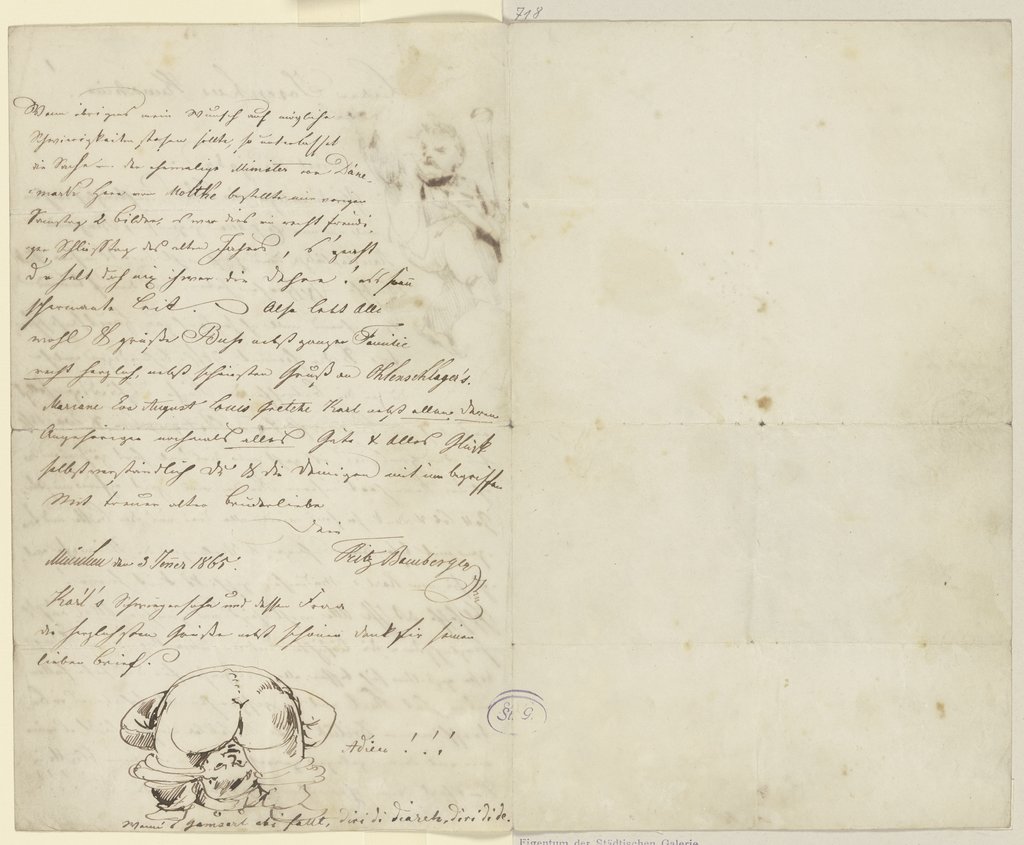 718
Wenn übrigens mein Wunsch auf mögliche
Schwierigkeiten stoßen sollte, so unterlasset
die Sache – der ehemalige Minister von Däne-
mark Herr von Moltke bestellte mir vorigen
Samstag 2 Bilder, es war dies ein recht freudi-
ger Schlußtag des alten Jahres, s'
du halt doch nix über die
scharmante Leit. Also lebt Alle
wohl & grüße Buss nebst ganzer Familie
recht herzlich, nebst schönsten Gruß an Ohlenschlager's.
Mariane Eva August Louis Gretche Karl nebst allen deren
Angehörigen nochmals alles Gute & alles Glück
selbstverständlich Du & die Deinigen mit inbegriffen
Mit treuer alter Bruderliebe
Dein
München den 3 Jener 1865. Fritz Bamberger
Karl's Schwiegersohn und dessen Frau
die herzlichsten Grüße nebst schönen Dank für seinen
lieben Brief.
Adieu ! ! !
Wann d' abi fallt, diri di diareh, diri di de.
St. G.
Eigentum der Städtischen Galerie